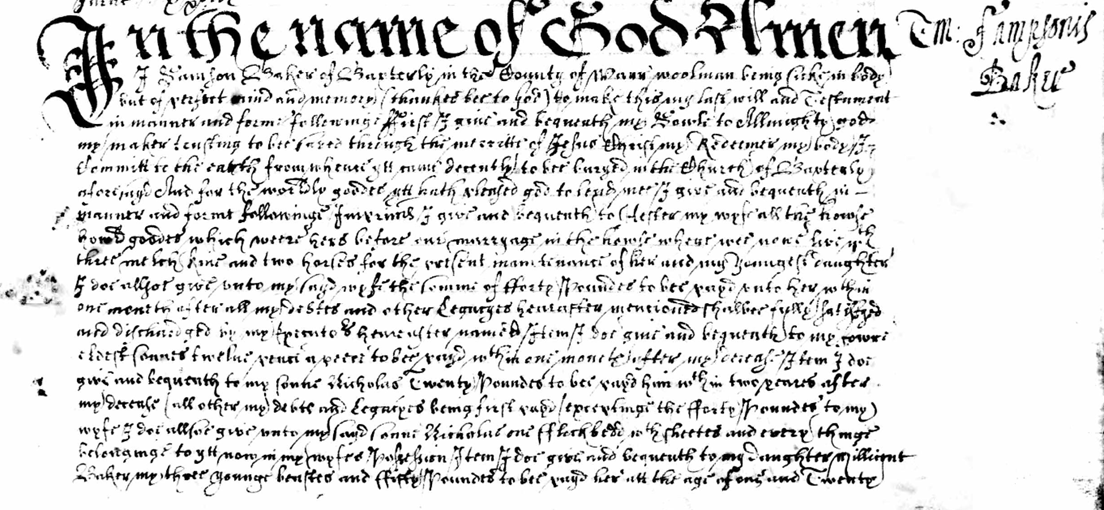 In the name of God Amen Tm: Sampsonis
Baker
I Sampson Baker of Baxterly in the County of Warr woolman being sicke in body
but of perfect mind and memory (thankes bee to God) to make this my last will and Testament
in manner and forme followinge First I give and bequeath my Sowle to Allmighty god
my maker trusting to bee saved through the merritts of Jesus Christ my Redeemer my body I
Committ to the earth from whence ytt came decently to bee buryed in the Church of Baxterly
aforesayd And for the worldly goodes ytt hath pleased god to lend mee I give and bequeath in
manner and forme followinge Imprimis I give and bequeath to Hester my wyfe all the howse
howld goodes which weere hers before our marryage in the howse where wee nowe live wth
three melch kine and two horses for the present maintenance of her and my youngest daughter
I doe allsoe give unto my sayd wyfe the somme of fforty Poundes to bee payd unto her within
one moneth after all my debtes and other Legacyes heareafter mencioned shalbee fully satisfyed
and discharged by my Executors hereafter named Item I doe give and bequeath to my fowre
eldest sonnes twelve pence a peece to bee payd wthin one moneth after my decease Item I doe
give and bequeath to my sonne Nicholas Twenty Poundes to bee payd him wthin two yeares after
my decease (all other my debts and Legacyes being first payd) exceptinge the fforty Poundes to my
wyfe I doe allsoe give unto my sayd sonne Nicholas one fflockbedd wth sheetes and every thinge
belonginge to ytt now in my wyfes Possession Item I doe give and bequeath to my daughter Millicent
Baker my three younge beastes and ffifty Poundes to bee payd her att the age of one and Twenty